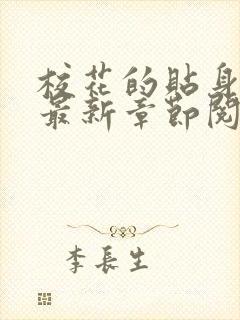 校花的貼身
最新章節閱
李長生